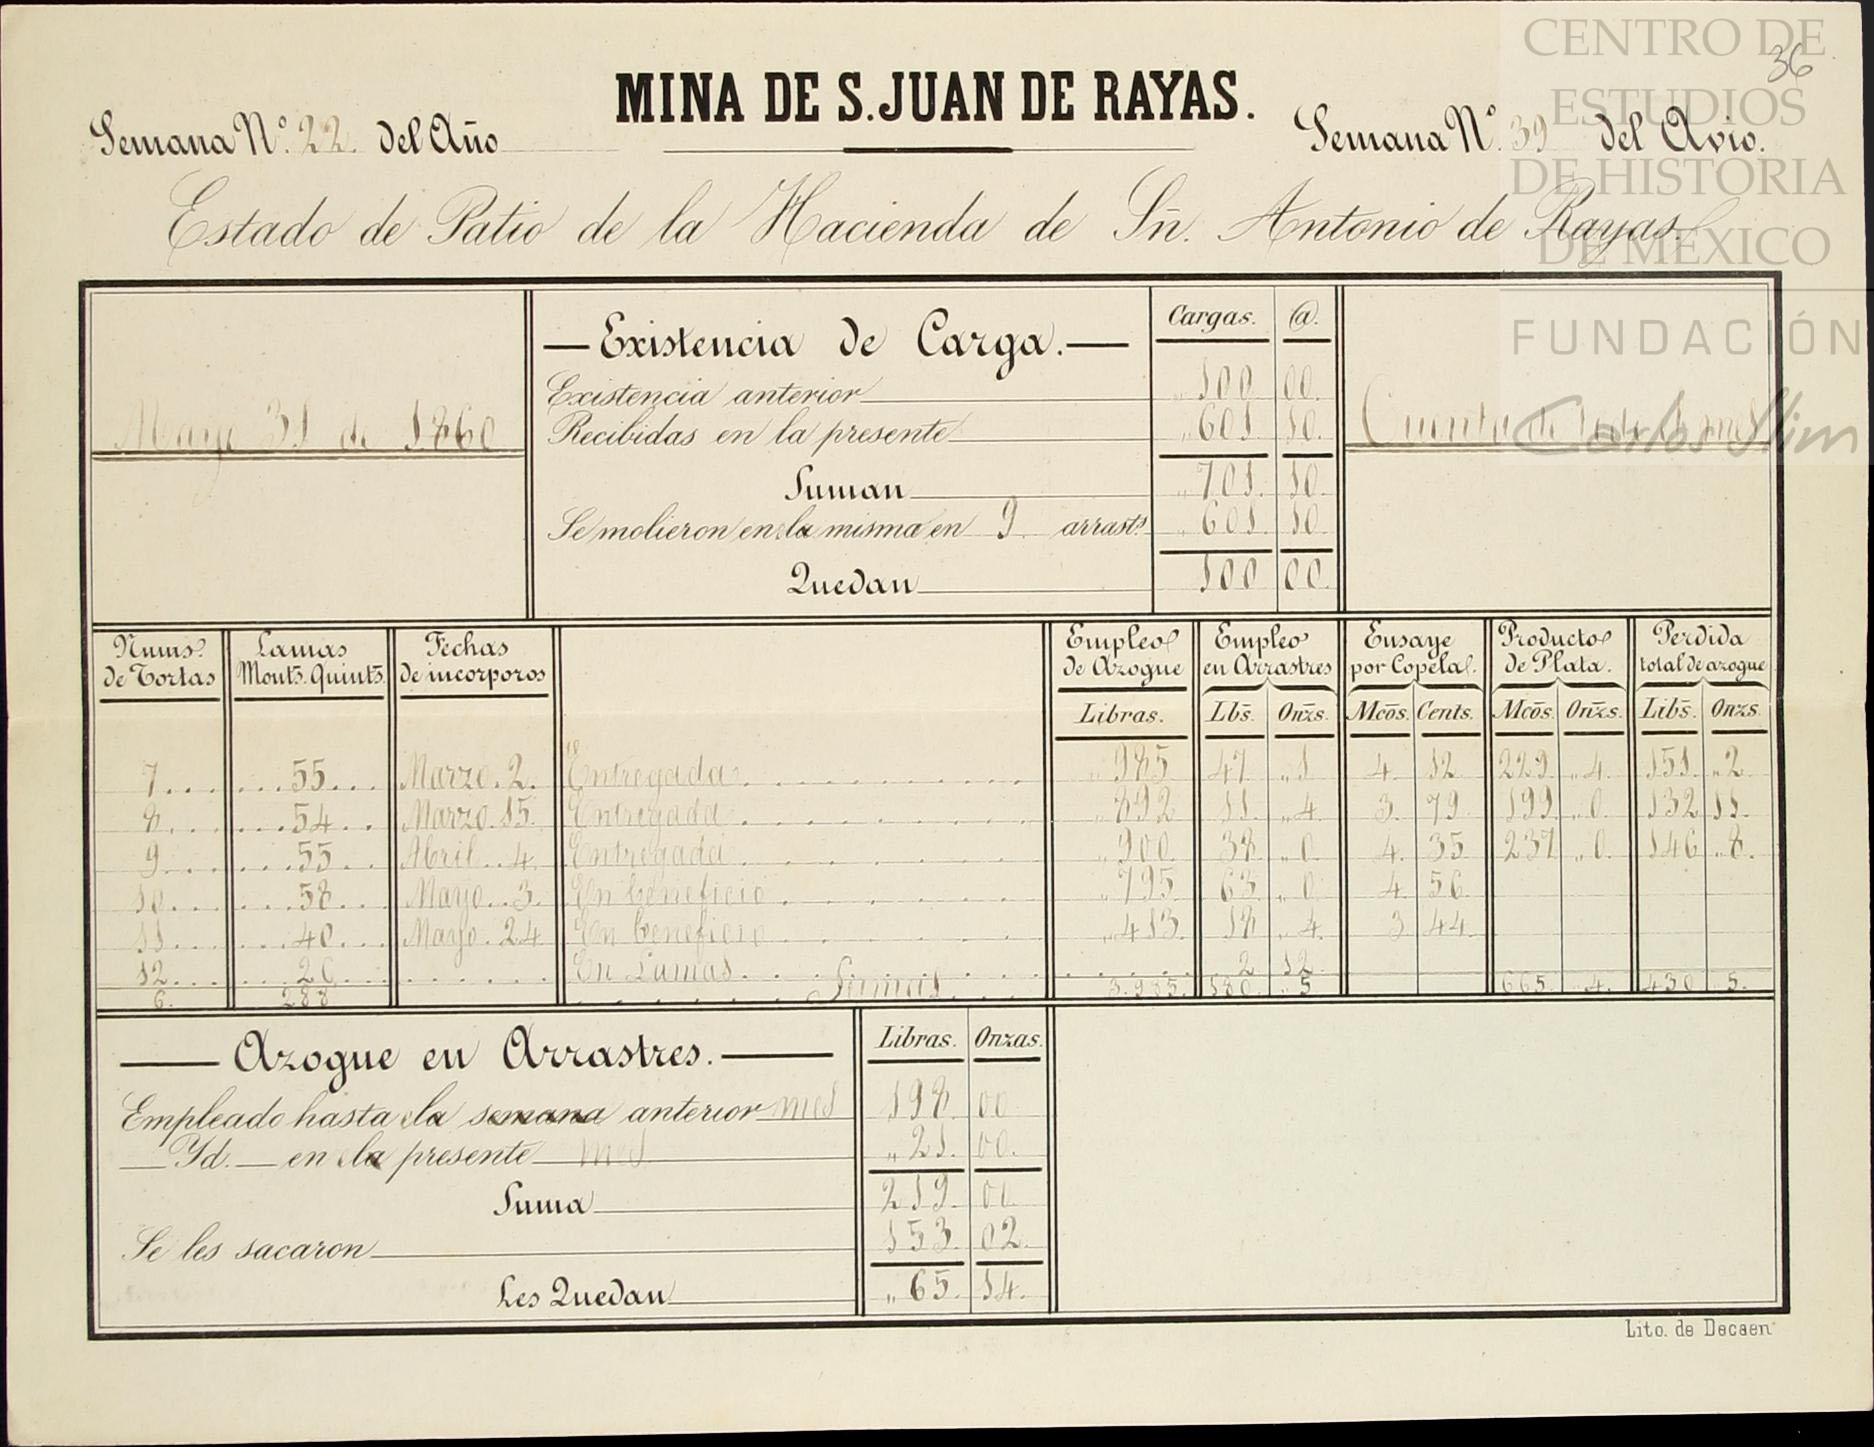 CENTRO DE
ESTUDIOS
DE HISTORIA
DE MEXICO
FUNDACIÓN
Carlos Slim
36
MINA DE S. JUAN DE RAYAS.
Semana Nº. 22. del Año
Semana Nº. 39 del Avio.
Estado de Patio de la Hacienda de Sn. Antonio de Rayas.
Mayo 31 de 1860
Existencia de Carga.
Cargas. @.
Existencia anterior „ 100 00.
Recibidas en la presente „ 601 10.
Suman „ 701. 10.
Se molieron en la misma en 9 arrasts. „ 601 10
Quedan 100 00.
Cuenta de todo el mes
Nums. de Tortas
Lamas Monts. Quints.
Fechas de incorporos
Empleo de Azogue
Empleo en Arrastres
Ensaye por Copela.
Producto de Plata.
Perdida total de azogue
Libras. Lbs. Onzs. Mcos. Cents. Mcos. Onzs. Libs. Onzs.
7... ...55... Marzo. 2. Entregada „ 985 47 „ 1 4. 12 229 „ 4. 151. „ 2
8... ...54... Marzo. 15. Entregada „ 892 11 „ 4 3. 79. 199 „ 0. 132 11.
9... ...55... Abril.. 4. Entregada „ 900. 38 „ 0 4. 35 237 „ 0. 146 „ 8.
10... ...58... Mayo.. 3. En beneficio „ 795 63 „ 0 4. 56
11... ...40... Mayo. 24 En beneficio „ 413. 18 „ 4. 3 44
12... ...26... En Lamas 2 12
6. 288 Sumas 3.985. 180. „ 5 665. „ 4. 430 5.
Azogue en Arrastres.
Libras. Onzas.
Empleado hasta el la semana anterior mes 198. 00
Yd. en el la presente mes „ 21. 00.
Suma 219. 00
Se les sacaron 153. 02.
Les Quedan „ 65. 14.
Lito. de Decaen